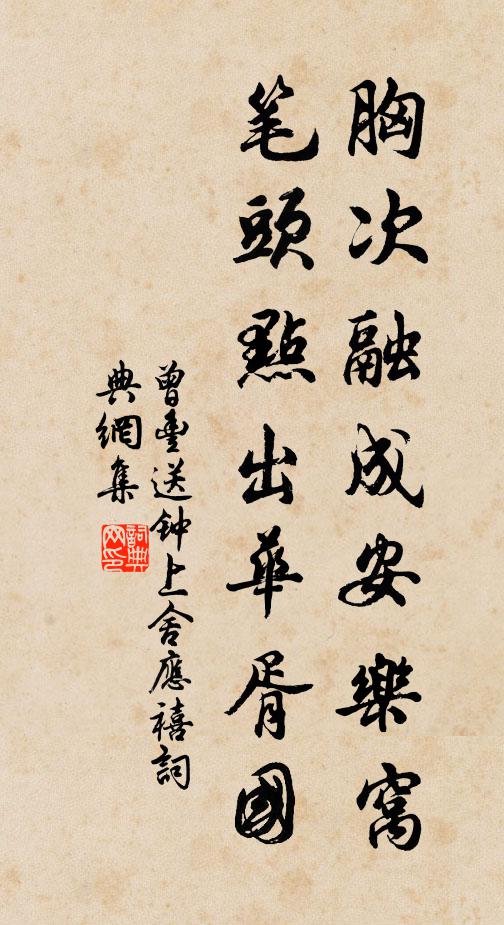 胸次融成安樂窩
笔頭點出華胥國
曾豐送钟上舍應禧詞
典網集
詞典网印